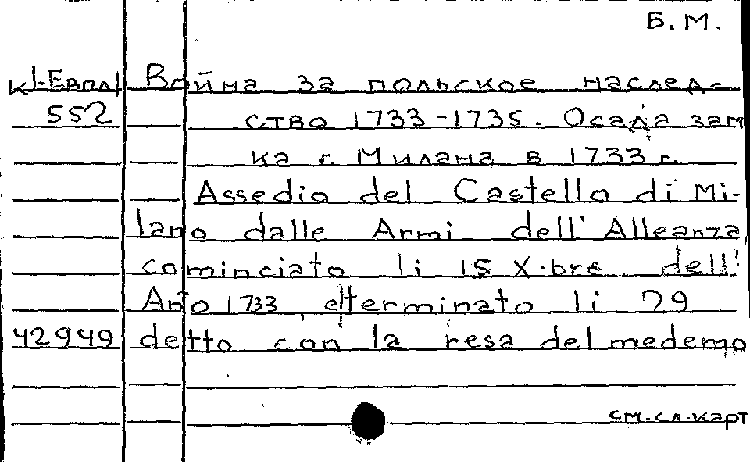 Б.М.
К 1-Евпл Война за польское наслед-
552 ство 1733-1735. Осада зам
ка г. Милана в 1733 г.
Assedio del Castello di Mi-
lano dalle Armi dell' Alleanza
cominciato li 15 X.bre dell'
Año 1733 eterminato li 29
42949 detto con la resa del medemo
см.сл.карт